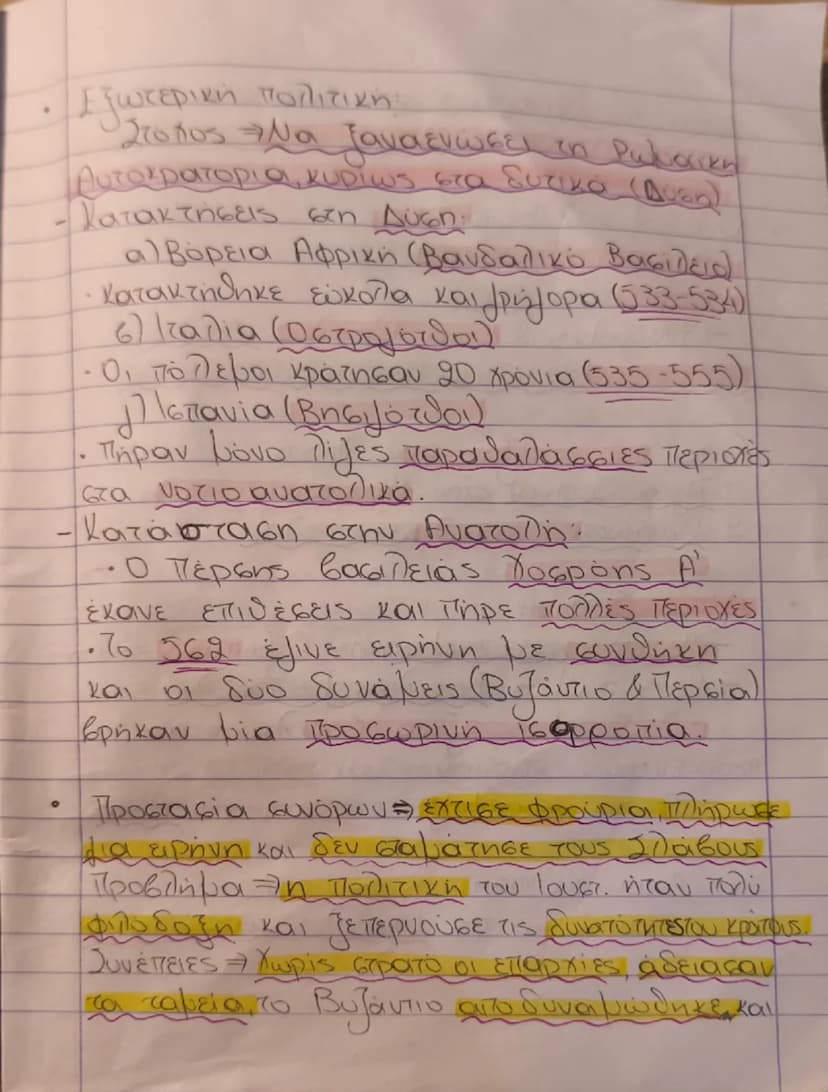 • Εξωτερική πολιτική:
Στοπος ⇒ Να ξαναενώσει τη Ρωμαϊκη
Αυτοκρατορία, κυρίως στα δυτικά (Δυση)
- Κατακτήσεις στη Δύση:
α) Βόρεια Αφρική (Βανδαλικό Βασιλειο)
· κατακτήθηκε εύκολα και γρήγορα (533-534)
β) Ιταλία (Οστρογότθοι)
· Οι πόλεμοι κράτησαν 20 χρόνια (535-555)
γ) Ισπανία (Βησιγότθοι)
· Πήραν μόνο λίγες παραθαλάσσιες περιοχές
στα νοτιοανατολικά.
- Κατάσταση στην Ανατολή:
· Ο Πέρσης βασιλειάς Χοσρόης Α'
έκανε επιθέσεις και πήρε πολλές περιοχές
· Το 562 έγινε ειρήνη με συνθήκη
και οι δύο δυνάμεις (Βυζάντιο & Περσία)
βρήκαν μία προσωρινή ισορροπία.
• Προστασία συνόρων ⇒ έχτισε φρούρια, πλήρωσε
για ειρήνη και δεν σταμάτησε τους Σλάβους
Προβλήμα ⇒ η πολιτική του Ιουστ. ήταν πολύ
φιλόδοξη και ξεπερνούσε τις δυνατότητες του κράτους.
Συνέπειες ⇒ Χωρίς στρατό οι επαρχίες, άδειασαν
τα ταμεία, το Βυζάντιο αποδυναμώθηκε, και